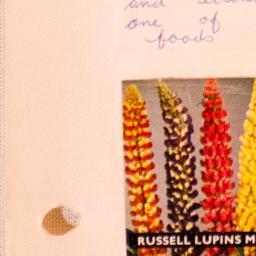 and
one of
foods
RUSSELL LUPINS M